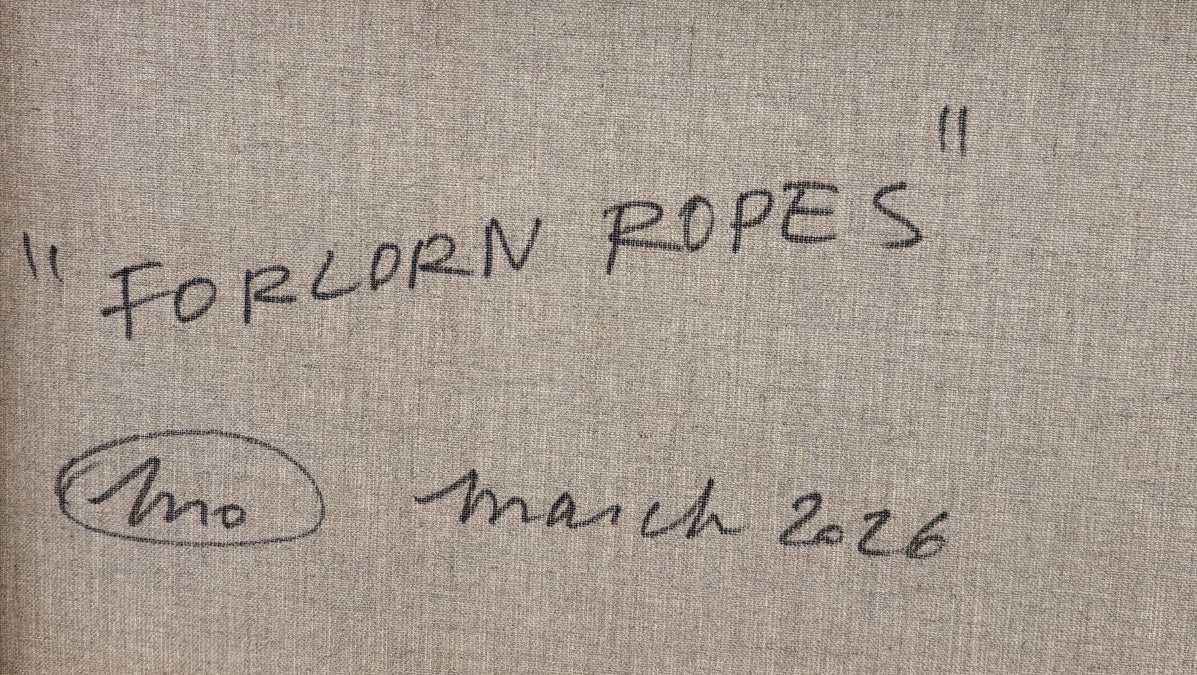 "FORLORN ROPES"
mo march 2026